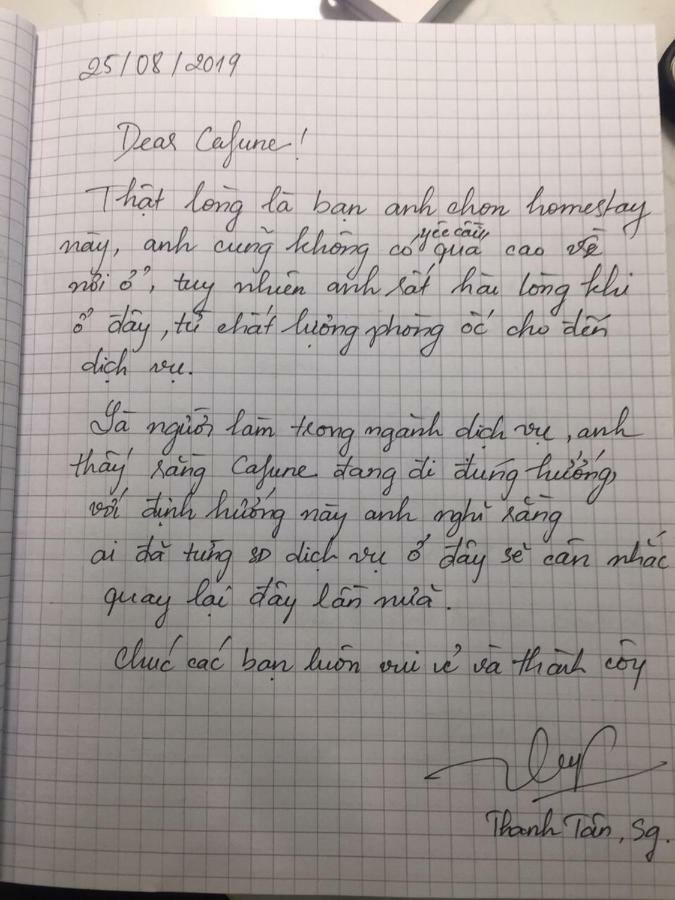 25/08/2019
Dear Cafune!
Thật lòng là bạn anh chọn homestay
này, anh cũng không có yêu cầu quá cao về
nơi ở, tuy nhiên anh rất hài lòng khi
ở đây, từ chất lượng phòng ốc cho đến
dịch vụ.
Là người làm trong ngành dịch vụ, anh
thấy rằng Cafune đang đi đúng hướng,
với định hướng này anh nghĩ rằng
ai đã từng sD dịch vụ ở đây sẽ cân nhắc
quay lại đây lần nữa.
Chúc các bạn luôn vui vẻ và thành công
Thanh Tân, Sg.